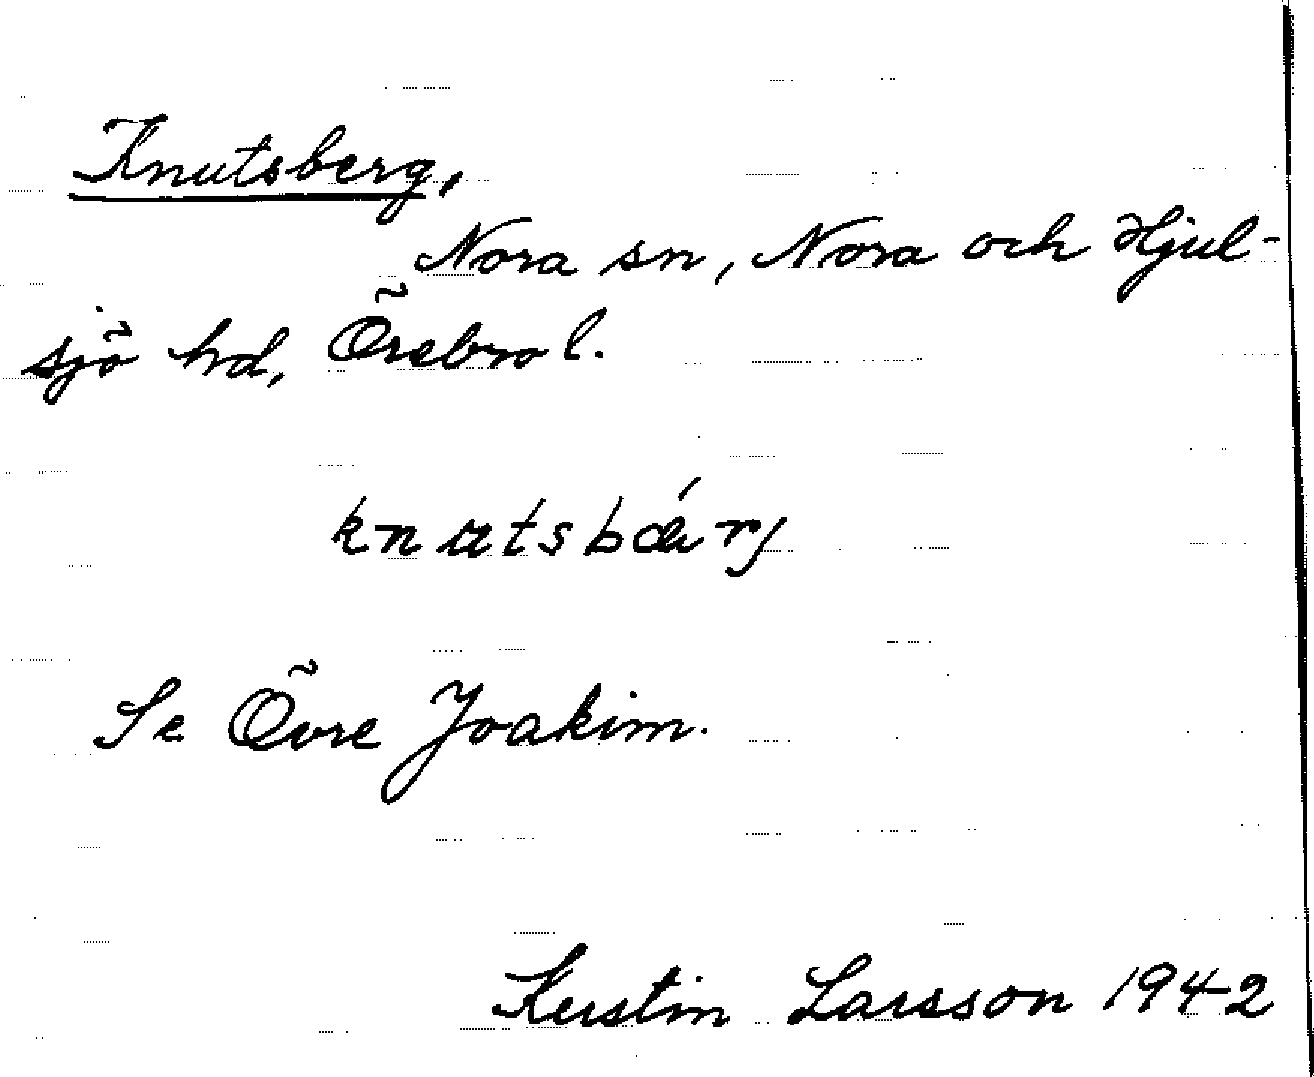 Knutsberg,
Nora sn, Nora och Hjul-
sjö hd, Örebro l.
knutsbǽrj
Se Övre Joakim.
Kerstin Larsson 1942